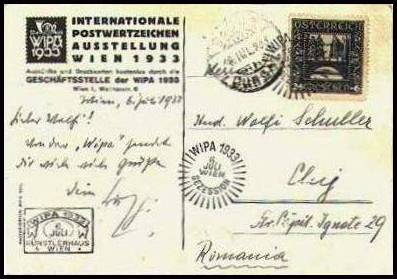 WIPA
1933
INTERNATIONALE
POSTWERTZEICHEN
AUSSTELLUNG
WIEN 1933
Auskünfte und Drucksorten kostenlos durch die
GESCHÄFTSSTELLE der WIPA 1933
Wien I.
Wien, 6. Juli 1933
Lieber Wolfi!
Von der "Wipa" sendet
dir viele Grüße
dein
WIPA 1933
6
JULI
KÜNSTLERHAUS
WIEN
ÖSTERREICH
WIPA 1933
6
JULI
WIEN
SEZESSION
Wolfi Schuller
Cluj
Ignate 29
Romania